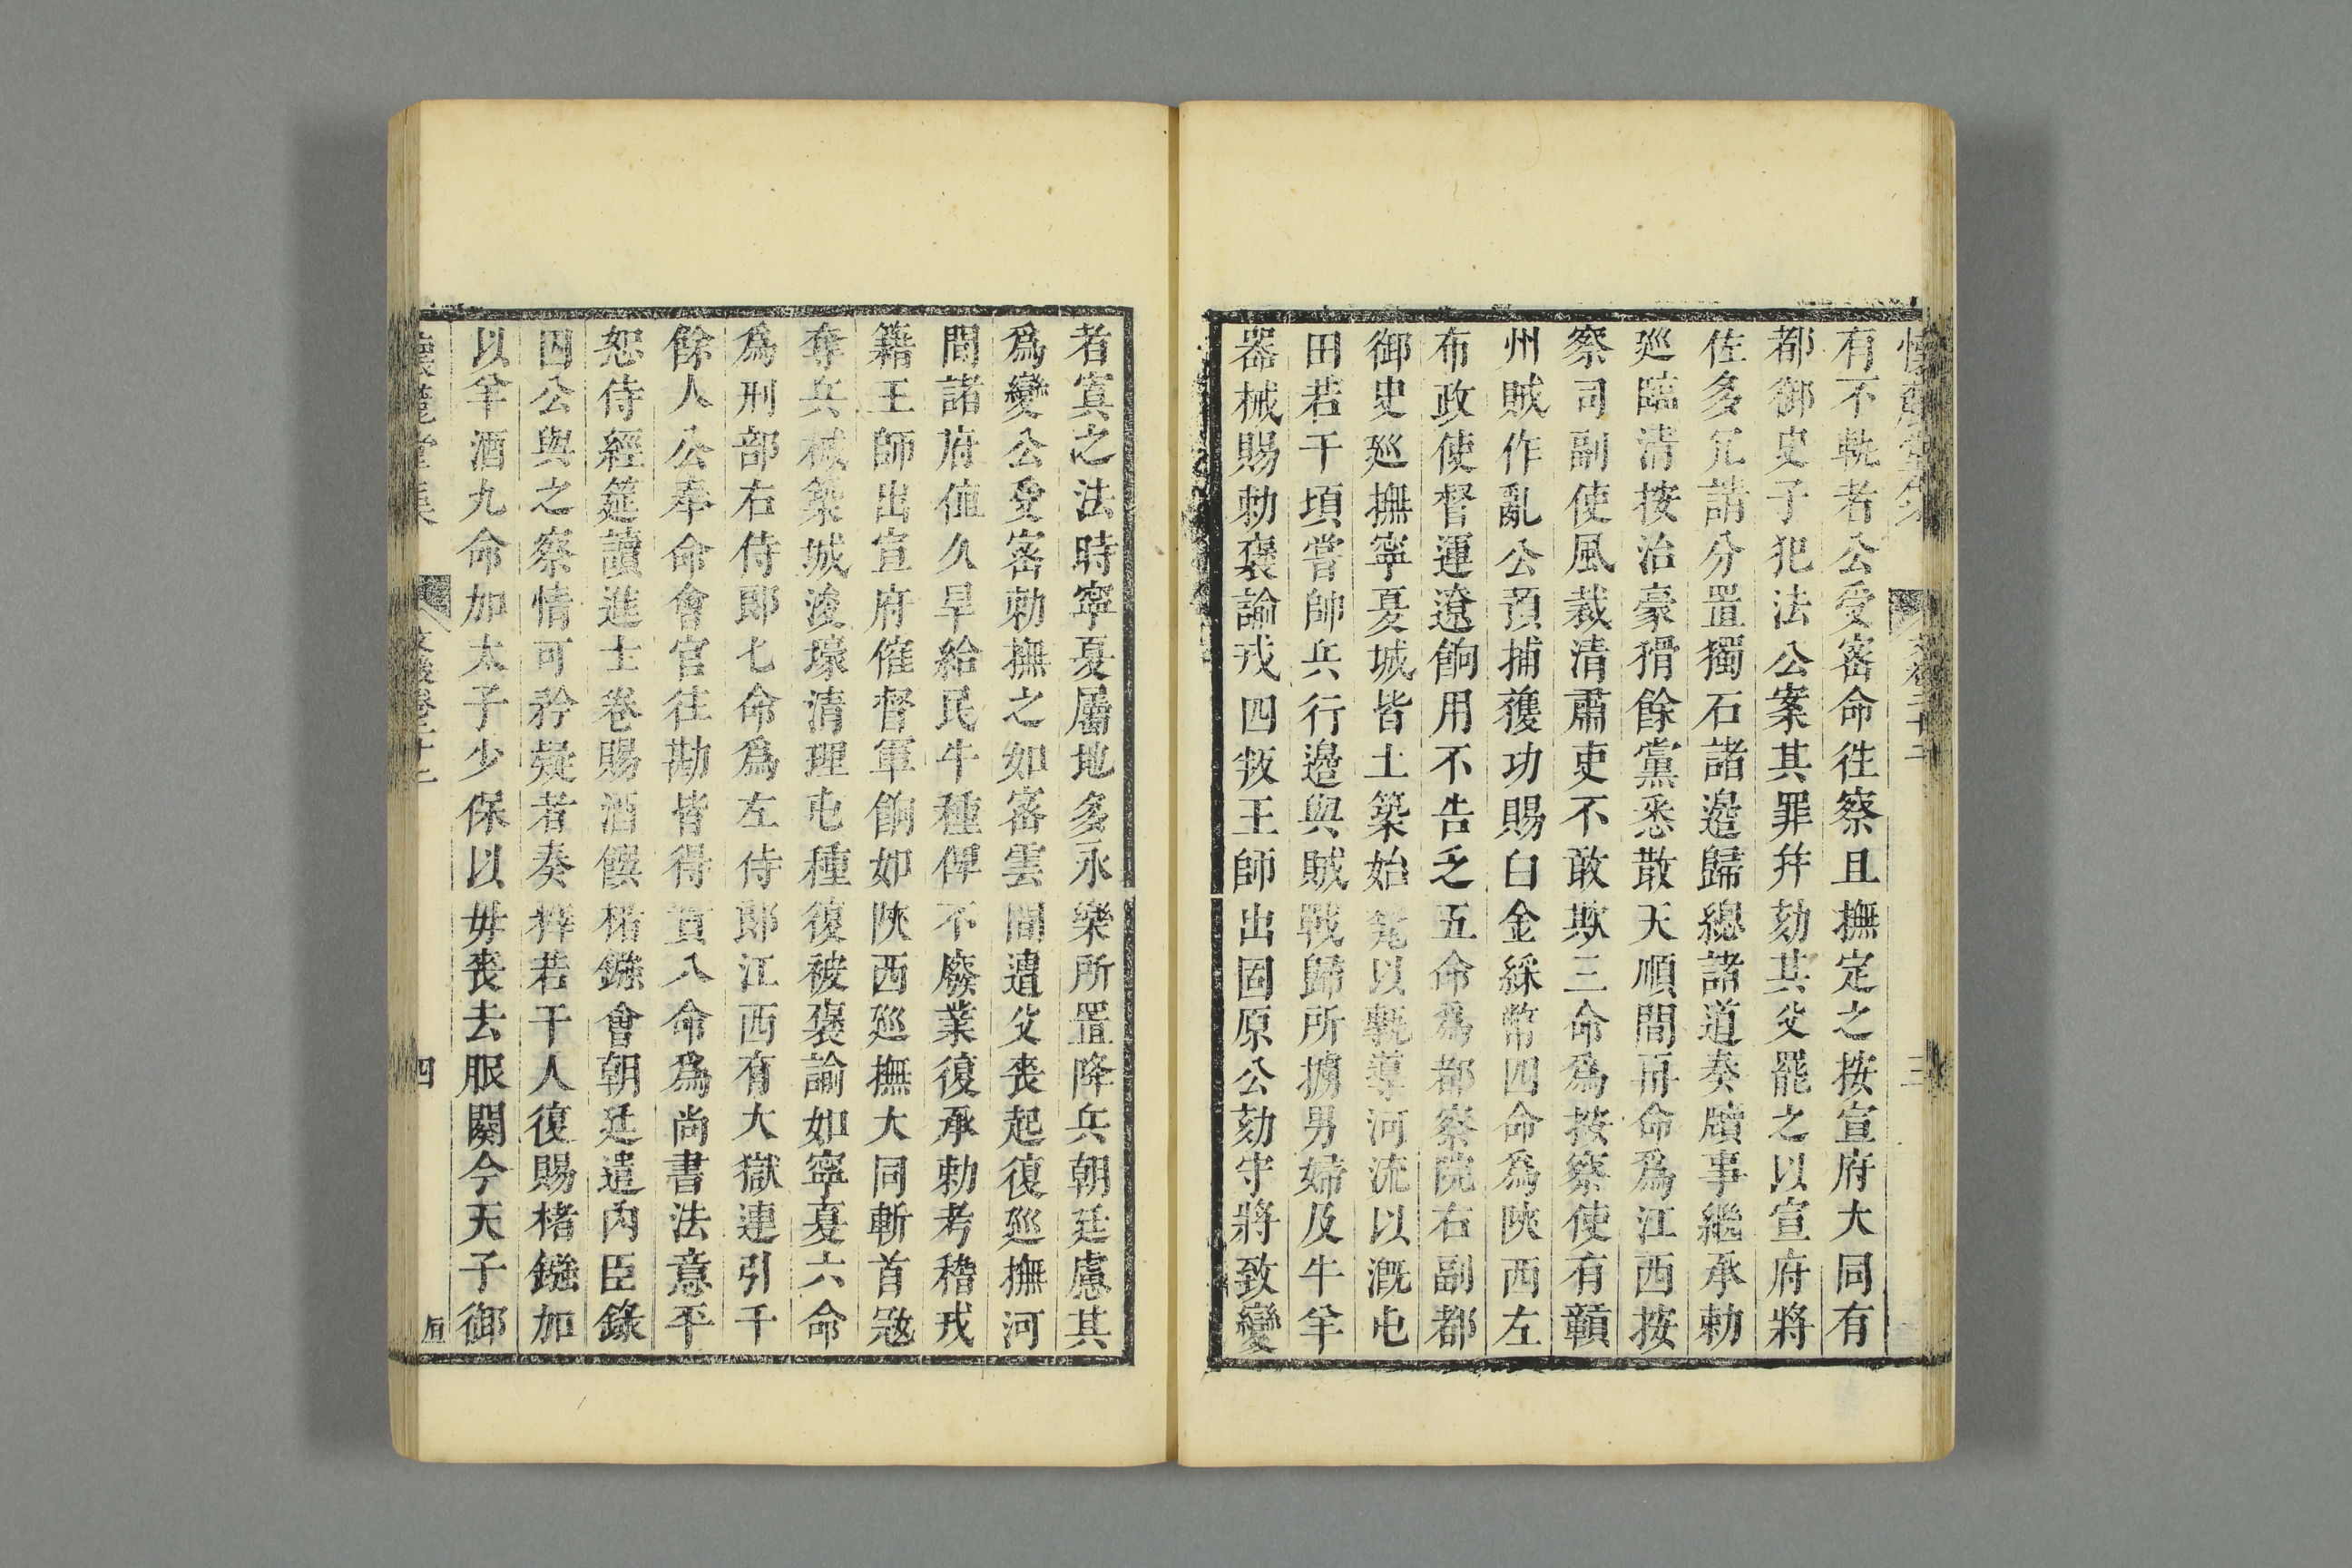 有不軌者公受宻命徃察且撫定之按宣府大同有
都御史子犯法公案其罪幷劾其父罷之以宣府將
佐多冗請分置獨石諸邉歸總諸道奏牘事繼承勅
廵臨清按治豪猾餘黨悉散天順間再命爲江西按
察司副使風裁清肅吏不敢欺三命爲按察使有贛
州賊作亂公預捕獲功賜白金綵幣四命爲陜西左
布政使督運遼餉用不告乏五命爲都察院右副都
御史廵撫寧夏城皆土築始甃以甎導河流以漑屯
田若干頃嘗帥兵行邉與賊戰歸所擄男婦及牛羊
器械賜勅襃諭戎四叛王師出固原公劾守將致變
者寘之法時寧夏屬地多永樂所置降兵朝廷慮其
爲變公受宻勅撫之如宻雲間遭父喪起復廵撫河
間諸府値久旱給民牛種俾不廢業復承勅考稽戎
籍王師出宣府催督軍餉如陜西廵撫大同斬首宼
奪兵械築城浚壕清理屯種復被襃諭如寧夏六命
爲刑部右侍郎七命爲左侍郎江西有大獄連引千
餘人公奉命會官往勘皆得實八命爲尚書法意平
恕侍經筵讀進士卷賜酒饌楮鏹會朝廷遣內臣錄
囚公與之察情可矜疑者奏釋若干人復賜楮鏹加
以羊酒九命加太子少保以毋喪去服闋今天子御
懷麓堂集
四